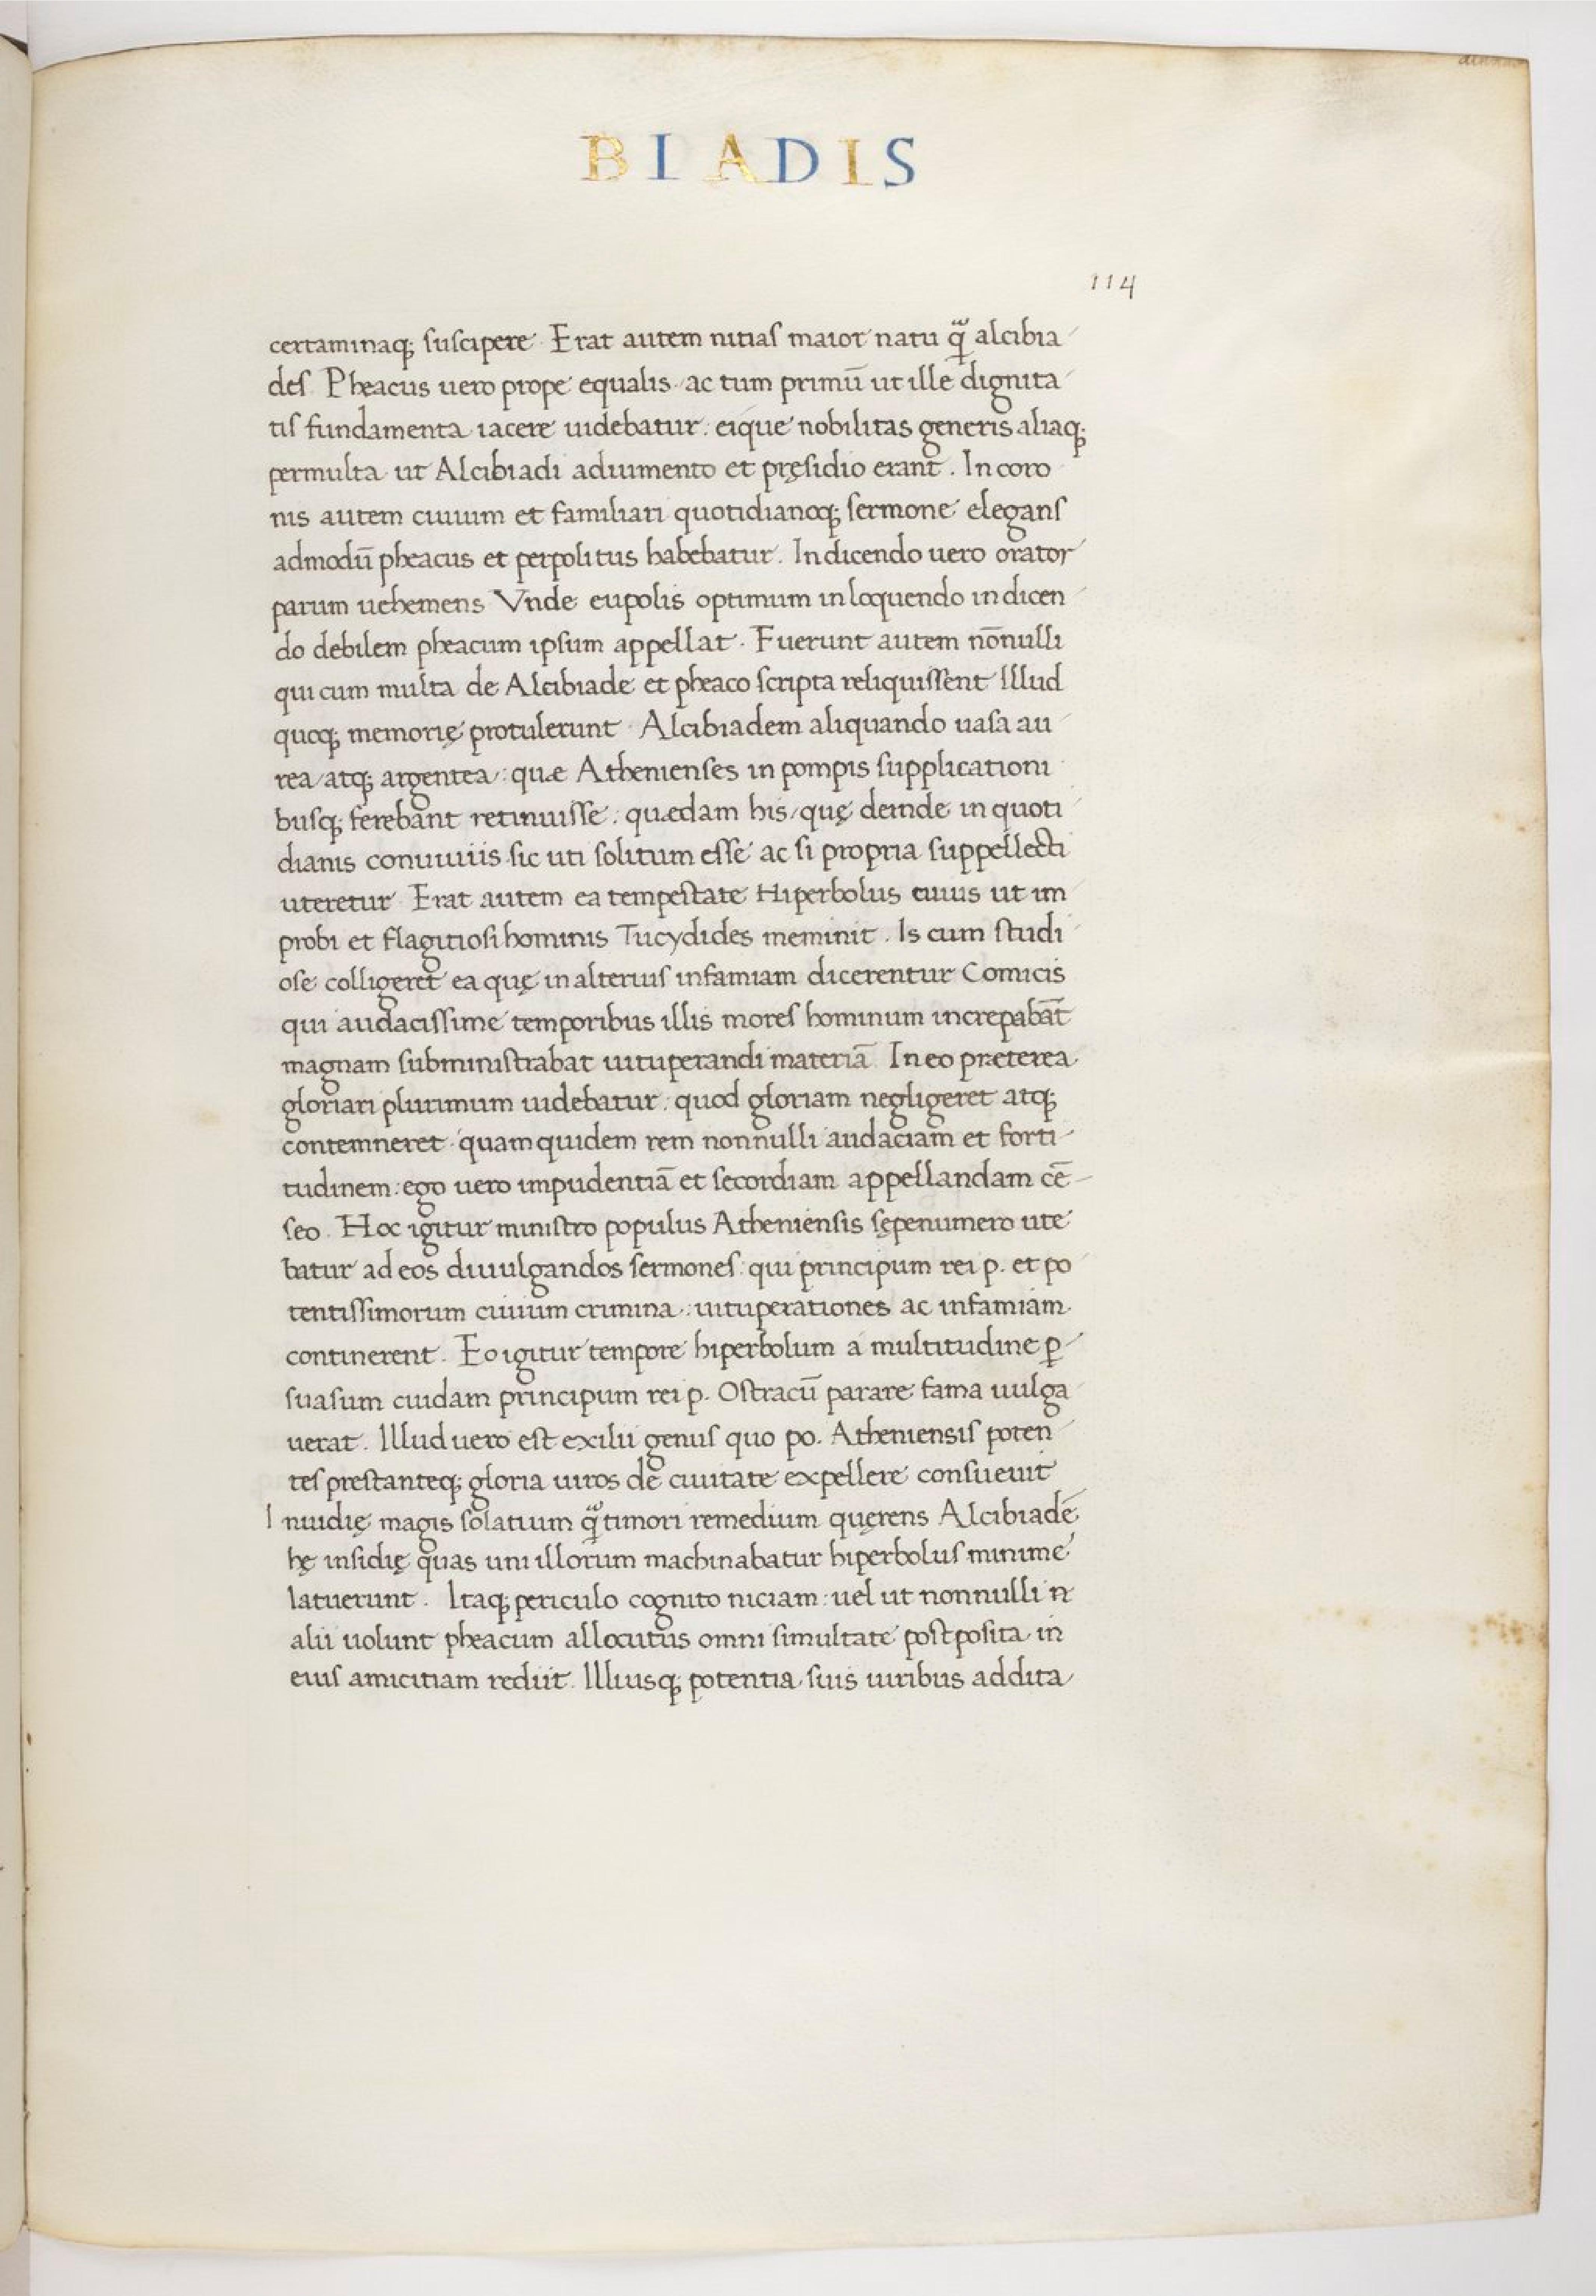 BIADIS
114
certaminaq; suscipere Erat autem nitias maior natu q̃ alcibia
des. Pheacus uero prope equalis ac tum primū ut ille dignita
tis fundamenta iacere uidebatur: eique nobilitas generis aliaq;
permulta ut Alcibiadi adiumento et pręsidio erant. In coro
nis autem ciuium et familiari quotidianoq; sermone elegans
admodū pheacus et perpolitus habebatur. In dicendo uero orator
parum uehemens Vnde eupolis optimum in loquendo in dicen
do debilem pheacum ipsum appellat. Fuerunt autem nōnulli
qui cum multa de Alcibiade et pheaco scripta reliquissent Illud
quoq; memorię protulerunt Alcibiadem aliquando uasa au
rea/atq; argentea: quæ Athenienses in pompis supplicationi
busq; ferebant retinuisse: quædam his/quę deinde in quoti
dianis conuiuiis sic uti solitum esse ac si propria suppellecti
uteretur Erat autem ea tempestate Hiperbolus cuius ut im
probi et flagitiosi hominis Tucydides meminit. Is cum studi
ose colligeret ea quę in alterius infamiam dicerentur Comicis
qui audacissime temporibus illis mores hominum increpabāt
magnam subministrabat uituperandi materiā In eo præterea
gloriari plurimum uidebatur: quod gloriam negligeret atq;
contemneret quam quidem rem nonnulli audaciam et forti
tudinem: ego uero impudentiā et secordiam appellandam cē
seo. Hoc igitur ministro populus Atheniensis sępenumero ute
batur ad eos diuulgandos sermones: qui principum rei p. et po
tentissimorum ciuium crimina: uituperationes ac infamiam
continerent. Eo igitur tempore hiperbolum a multitudine ꝑ
suasum cuidam principum rei p. Ostracū parare fama uulga
uerat. Illud uero est exilii genus quo po. Atheniensis poten
tes prestanteq; gloria uiros de ciuitate expellere consueuit
Inuidię magis solatium q̃ timori remedium quęrens Alcibiadē
hę insidię quas uni illorum machinabatur hiperbolus minime
latuerunt. Itaq; periculo cognito niciam: uel ut nonnulli
alii uolunt pheacum allocutus omni simultate postposita in
eius amicitiam rediit. Illiusq; potentia suis uiribus addita